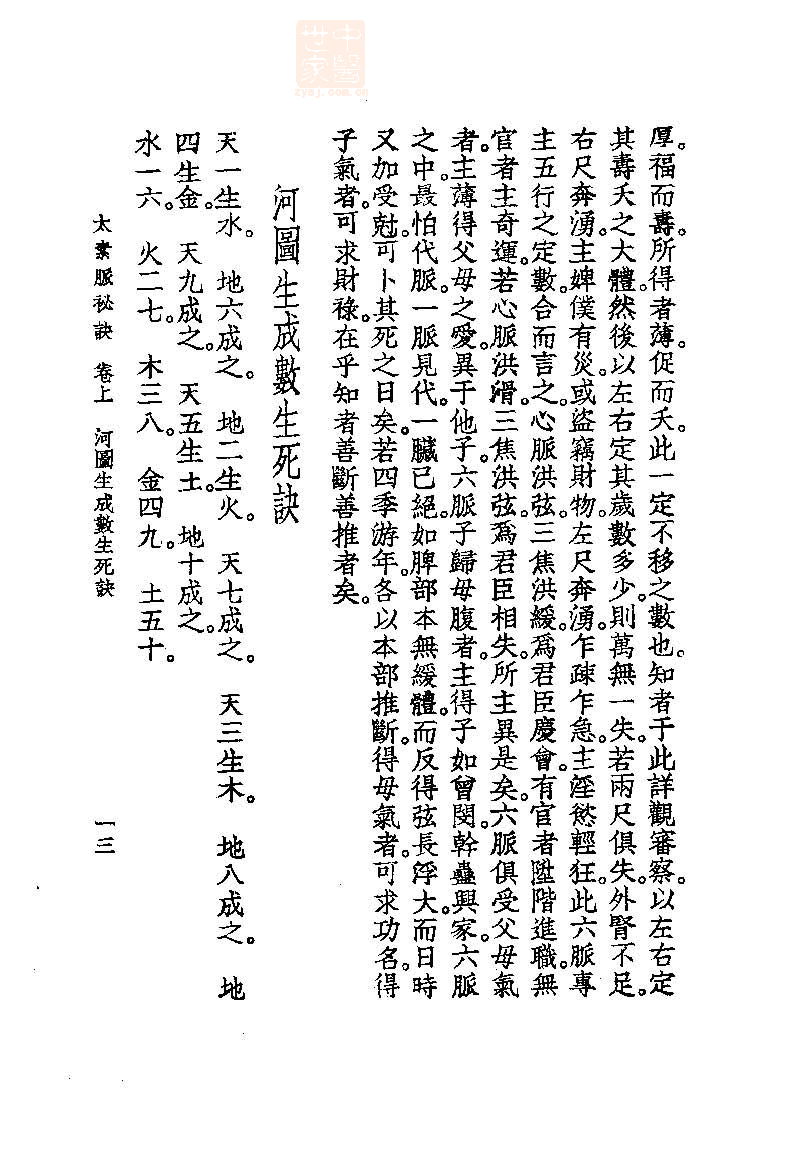 中醫世家
zysj.com.cn
厚。福而壽。所得者薄。促而夭。此一定不移之數也。知者于此詳觀審察。以左右定
其壽夭之大體。然後以左右定其歲數多少。則萬無一失。若兩尺俱失。外腎不足。
右尺奔湧。主婢僕有災。或盜竊財物。左尺奔湧。乍疎乍急。主淫慾輕狂。此六脈專
主五行之定數。合而言之。心脈洪弦。三焦洪緩。爲君臣慶會。有官者陞階進職。無
官者主奇運。若心脈洪滑。三焦洪弦。爲君臣相失。所主異是矣。六脈俱受父母氣
者。主薄得父母之愛。異于他子。六脈子歸母腹者。主得子如曾閔。幹蠱興家。六脈
之中。最怕代脈。一脈見代。一臟已絕。如脾部本無緩體。而反得弦長浮大。而日時
又加受尅。可卜其死之日矣。若四季游年。各以本部推斷。得母氣者。可求功名。得
子氣者。可求財祿。在乎知者善斷善推者矣。
河圖生成數生死訣
天一生水。 地六成之。 地二生火。 天七成之。 天三生木。 地八成之。 地
四生金。 天九成之。 天五生土。 地十成之。
水一六。 火二七。 木三八。 金四九。 土五十。
太素脈祕訣 卷上 河圖生成數生死訣 一三